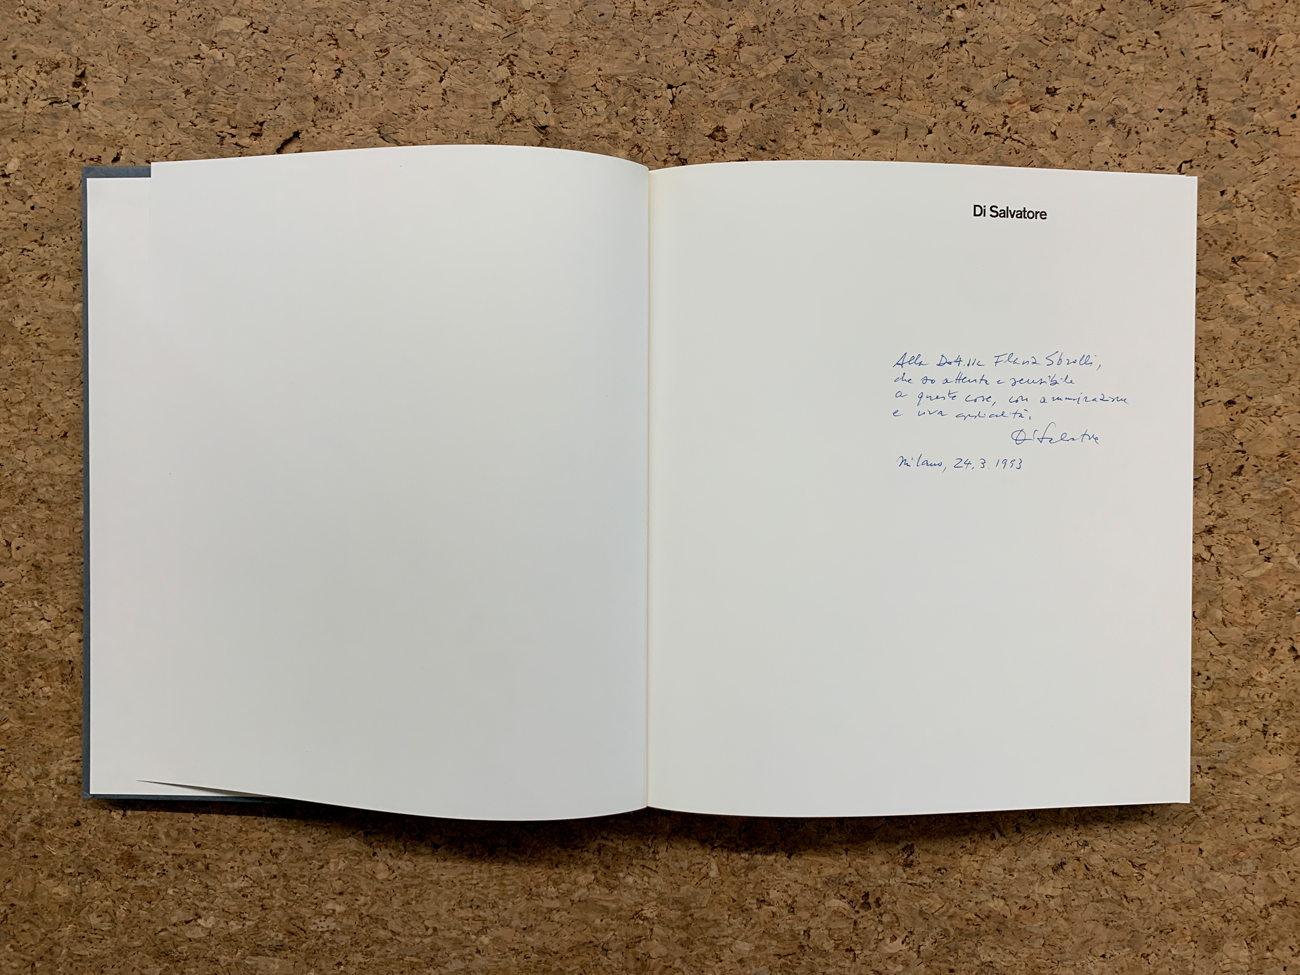 Di Salvatore
Alla Dott.ssa Flavia
che so attenta e sensibile
a queste cose, con ammirazione
e viva cordialità,
Di Salvatore
Milano, 24.3.1993